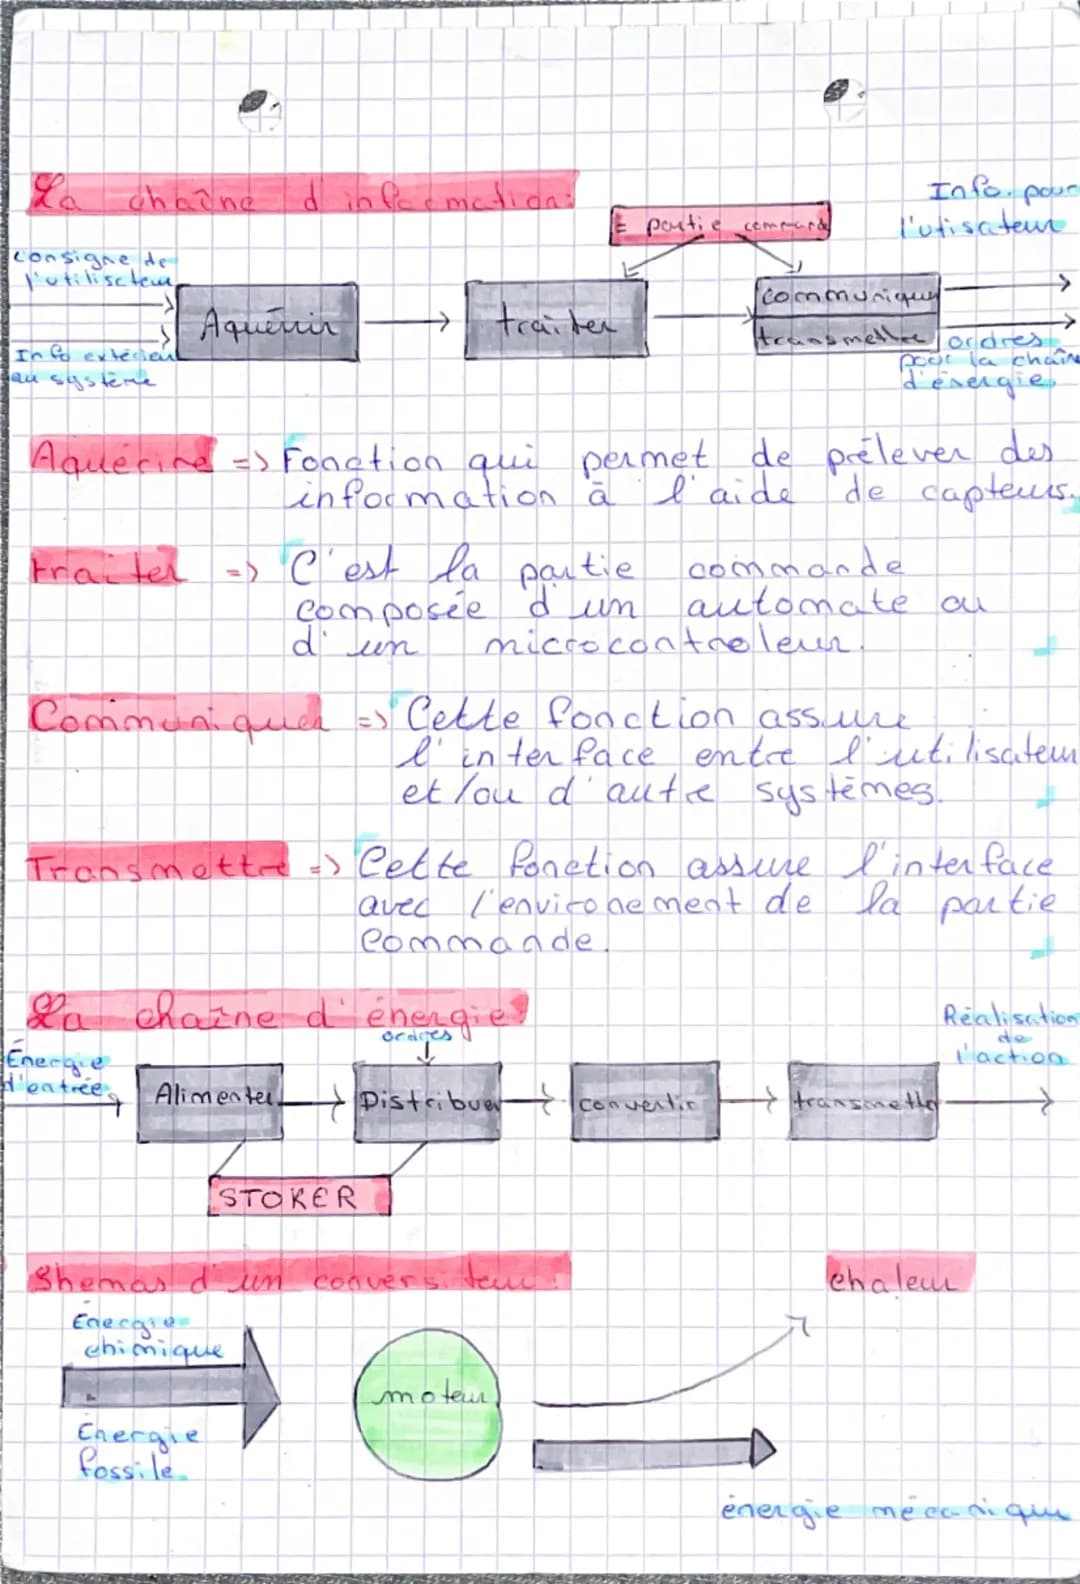 La chaîne d'information:
= partie command
Info. pour
l'utisateur
consigne de
l'utilisateur
Aquérir
traiter
communiquer
transmettre
Info extérieur
au système
ordres
pour la chaîne
d'énergie
Aquérire => Fonction qui permet de prélever des
information à l'aide de capteurs.
traiter => C'est la partie commande
composée d'un automate ou
d'un microcontroleur.
Communiquer => Cette fonction assure
l'interface entre l'utilisateur
et/ou d'autre systèmes.
Transmettre => Cette fonction assure l'interface
avec l'environement de la partie
Commande.
La chaîne d'énergie:
ordres
Réalisation
de
l'action
Énergie
d'entrée
Alimenter
Distribuer
convertir
transmettre
STOKER
Shemas d'un conversiteur:
chaleur
Énergie
chimique
moteur
Énergie
fossile
énergie mécanique